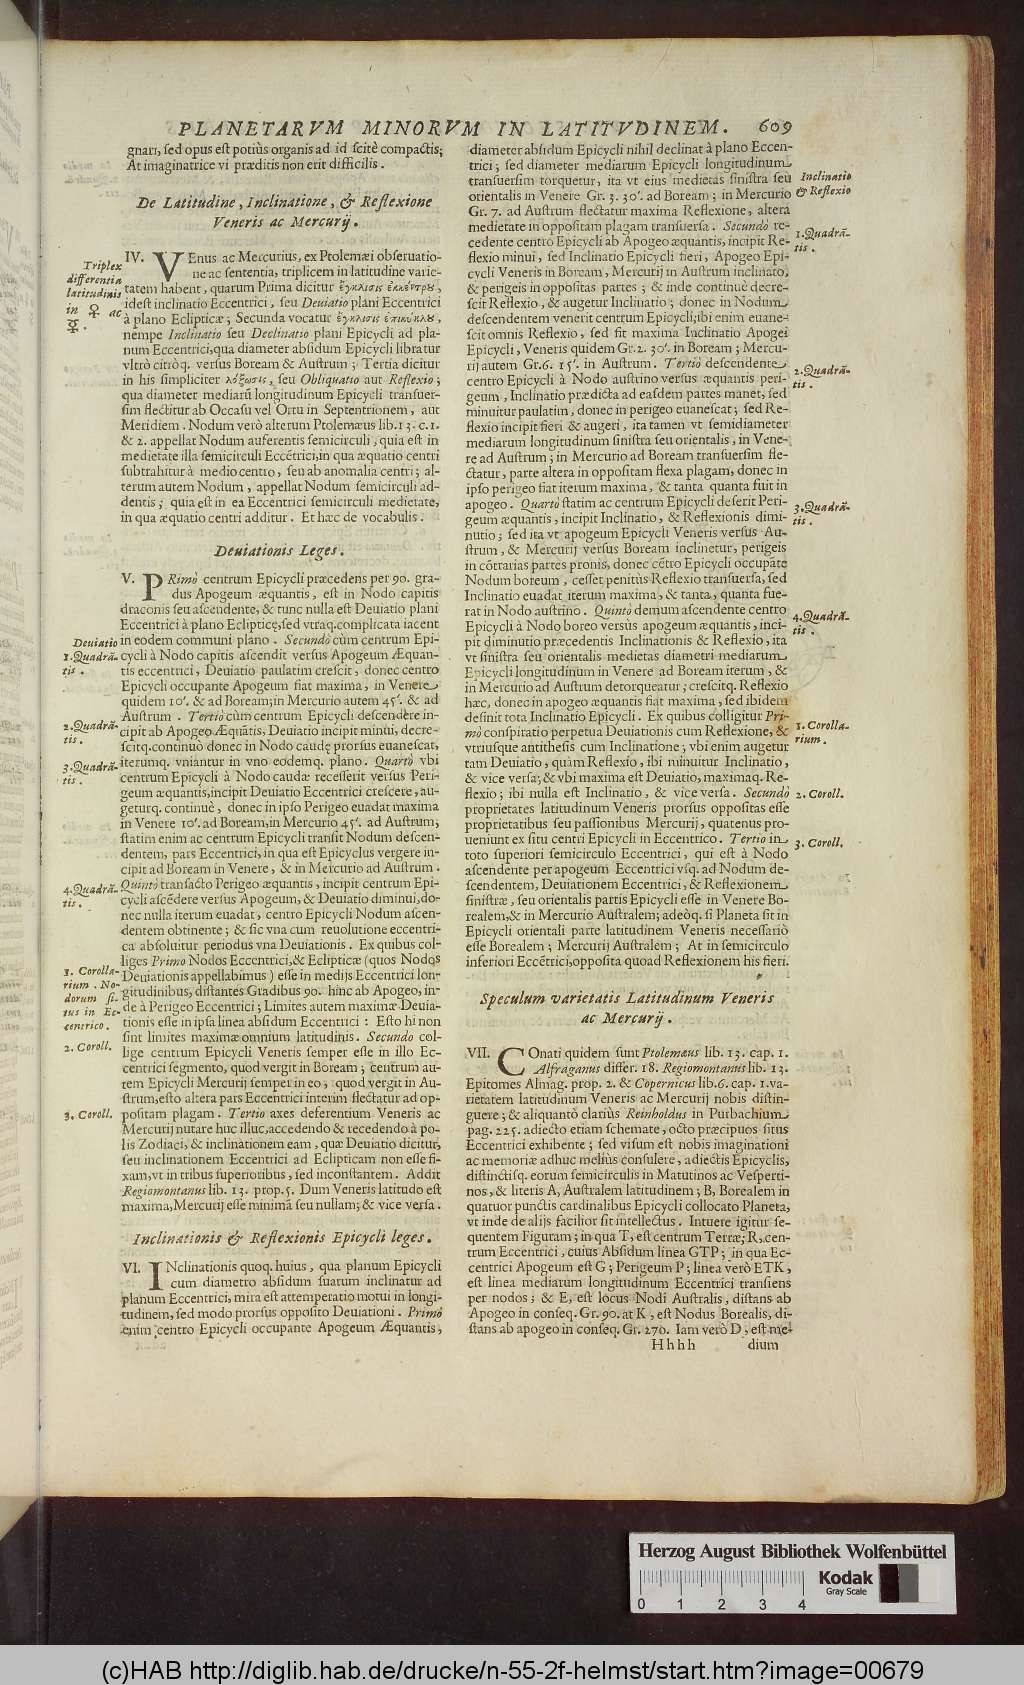 PLANETARVM MINORVM IN LATITVDINEM. 609
gnari, sed opus est potiùs organis ad id scitè compactis;
At imaginatrice vi præditis non erit difficilis.
De Latitudine, Inclinatione, & Reflexione
Veneris ac Mercurij.
Triplex
differentia
latitudinis
in ♀ ac
☿.
IV. VEnus ac Mercurius, ex Ptolemæi obseruatio-
ne ac sententia, triplicem in latitudine varie-
tatem habent, quarum Prima dicitur ἔγκλισις ἐκκέντρου,
idest inclinatio Eccentrici, seu Deuiatio plani Eccentrici
à plano Eclipticæ; Secunda vocatur ἔγκλισις ἐπικύκλου,
nempe Inclinatio seu Declinatio plani Epicycli ad pla-
num Eccentrici, qua diameter absidum Epicycli libratur
vltrò citròq. versus Boream & Austrum; Tertia dicitur
in his simpliciter λόξωσις, seu Obliquatio aut Reflexio;
qua diameter mediarũ longitudinum Epicycli transuer-
sim flectitur ab Occasu vel Ortu in Septentrionem, aut
Meridiem. Nodum verò alterum Ptolemæus lib. 13. c. 1.
& 2. appellat Nodum auferentis semicirculi, quia est in
medietate illa semicirculi Eccẽtrici, in qua æquatio centri
subtrahitur à medio centro, seu ab anomalia centri; al-
terum autem Nodum, appellat Nodum semicirculi ad-
dentis; quia est in ea Eccentrici semicirculi medietate,
in qua æquatio centri additur. Et hæc de vocabulis.
Deuiationis Leges.
V. PRimò centrum Epicycli præcedens per 90. gra-
dus Apogeum æquantis, est in Nodo capitis
draconis seu ascendente, & tunc nulla est Deuiatio plani
Eccentrici à plano Eclipticę, sed vtraq. complicata iacent
in eodem communi plano. Secundò cùm centrum Epi-
cycli à Nodo capitis ascendit versus Apogeum Æquan-
tis eccentrici, Deuiatio paulatim crescit, donec centro
Epicycli occupante Apogeum fiat maxima, in Venere
quidem 10'. & ad Boream; in Mercurio autem 45'. & ad
Austrum. Tertiò cùm centrum Epicycli descendere in-
cipit ab Apogeo Æquãtis, Deuiatio incipit minui, decre-
scitq. continuò donec in Nodo caudę prorsus euanescat,
iterumq. vniantur in vno eodemq. plano. Quartò vbi
centrum Epicycli à Nodo caudæ recesserit versus Peri-
geum æquantis, incipit Deuiatio Eccentrici crescere, au-
geturq. continuè, donec in ipso Perigeo euadat maxima
in Venere 10'. ad Boream, in Mercurio 45'. ad Austrum;
statim enim ac centrum Epicycli transit Nodum descen-
dentem, pars Eccentrici, in qua est Epicyclus vergere in-
cipit ad Boream in Venere, & in Mercurio ad Austrum.
Quintò transacto Perigeo æquantis, incipit centrum Epi-
cycli ascẽdere versus Apogeum, & Deuiatio diminui, do-
nec nulla iterum euadat, centro Epicycli Nodum ascen-
dentem obtinente; & sic vna cum reuolutione eccentri-
ca absoluitur periodus vna Deuiationis. Ex quibus col-
liges Primo Nodos Eccentrici, & Eclipticæ (quos Nodos
Deuiationis appellabimus) esse in medijs Eccentrici lon-
gitudinibus, distantes Gradibus 90. hinc ab Apogeo, in-
de à Perigeo Eccentrici; Limites autem maximæ Deuia-
tionis esse in ipsa linea absidum Eccentrici: Esto hi non
sint limites maximæ omnium latitudinis. Secundo col-
lige centrum Epicycli Veneris semper esse in illo Ec-
centrici segmento, quod vergit in Boream; centrum au-
tem Epicycli Mercurij semper in eo, quod vergit in Au-
strum, esto altera pars Eccentrici interim flectatur ad op-
positam plagam. Tertio axes deferentium Veneris ac
Mercurij nutare huc illuc, accedendo & recedendo à po-
lis Zodiaci, & inclinationem eam, quæ Deuiatio dicitur,
seu inclinationem Eccentrici ad Eclipticam non esse fi-
xam, vt in tribus superioribus, sed inconstantem. Addit
Regiomontanus lib. 13. prop. 5. Dum Veneris latitudo est
maxima, Mercurij esse minimã seu nullam; & vice versa.
Deuiatio
1. Quadrã-
tis.
2. Quadrã-
tis.
3. Quadrã-
tis.
4. Quadrã-
tis.
1. Corolla-
rium. No-
dorum si-
tus in Ec-
centrico.
2. Coroll.
3. Coroll.
Inclinationis & Reflexionis Epicycli leges.
VI. INclinationis quoq. huius, qua planum Epicycli
cum diametro absidum suarum inclinatur ad
planum Eccentrici, mira est attemperatio motui in longi-
tudinem, sed modo prorsus opposito Deuiationi. Primò
enim centro Epicycli occupante Apogeum Æquantis,
diameter absidum Epicycli nihil declinat à plano Eccen-
trici; sed diameter mediarum Epicycli longitudinum
transuersim torquetur, ita vt eius medietas sinistra seu
orientalis in Venere Gr. 3. 30'. ad Boream; in Mercurio
Gr. 7. ad Austrum flectatur maxima Reflexione, altera
medietate in oppositam plagam transuersa. Secundò re-
cedente centro Epicycli ab Apogeo æquantis, incipit Re-
flexio minui, sed Inclinatio Epicycli fieri, Apogeo Epi-
cycli Veneris in Boream, Mercurij in Austrum inclinato,
& perigeis in oppositas partes; & inde continuè decre-
scit Reflexio, & augetur Inclinatio; donec in Nodum
descendentem venerit centrum Epicycli, ibi enim euane-
scit omnis Reflexio, sed fit maxima Inclinatio Apogei
Epicycli, Veneris quidem Gr. 2. 30'. in Boream; Mercu-
rij autem Gr. 6. 15'. in Austrum. Tertiò descendente
centro Epicycli à Nodo austrino versus æquantis peri-
geum, Inclinatio prædicta ad easdem partes manet, sed
minuitur paulatim, donec in perigeo euanescat; sed Re-
flexio incipit fieri & augeri, ita tamen vt semidiameter
mediarum longitudinum sinistra seu orientalis, in Vene-
re ad Austrum; in Mercurio ad Boream transuersim fle-
ctatur, parte altera in oppositam flexa plagam, donec in
ipso perigeo fiat iterum maxima, & tanta quanta fuit in
apogeo. Quartò statim ac centrum Epicycli deserit Peri-
geum æquantis, incipit Inclinatio, & Reflexionis dimi-
nutio; sed ita vt apogeum Epicycli Veneris versus Au-
strum, & Mercurij versus Boream inclinetur, perigeis
in cõtrarias partes pronis, donec cẽtro Epicycli occupãte
Nodum boreum, cesset penitùs Reflexio transuersa, sed
Inclinatio euadat iterum maxima, & tanta, quanta fue-
rat in Nodo austrino. Quintò demum ascendente centro
Epicycli à Nodo boreo versùs apogeum æquantis, inci-
pit diminutio præcedentis Inclinationis & Reflexio, ita
vt sinistra seu orientalis medietas diametri mediarum
Epicycli longitudinum in Venere ad Boream iterum, &
in Mercurio ad Austrum detorqueatur; crescitq. Reflexio
hæc, donec in apogeo æquantis fiat maxima, sed ibidem
desinit tota Inclinatio Epicycli. Ex quibus colligitur Pri-
mò conspiratio perpetua Deuiationis cum Reflexione, &
vtriusque antithesis cum Inclinatione; vbi enim augetur
tam Deuiatio, quàm Reflexio, ibi minuitur Inclinatio,
& vice versa; & vbi maxima est Deuiatio, maximaq. Re-
flexio; ibi nulla est Inclinatio, & vice versa. Secundò
proprietates latitudinum Veneris prorsus oppositas esse
proprietatibus seu passionibus Mercurij, quatenus pro-
ueniunt ex situ centri Epicycli in Eccentrico. Tertio in
toto superiori semicirculo Eccentrici, qui est à Nodo
ascendente per apogeum Eccentrici vsq. ad Nodum de-
scendentem, Deuiationem Eccentrici, & Reflexionem
sinistræ, seu orientalis partis Epicycli esse in Venere Bo-
realem, & in Mercurio Australem; adeòq. si Planeta sit in
Epicycli orientali parte latitudinem Veneris necessariò
esse Borealem; Mercurij Australem; At in semicirculo
inferiori Eccẽtrici, opposita quoad Reflexionem his fieri.
Inclinatio
& Reflexio
1. Quadrã-
tis.
2. Quadrã-
tis.
3. Quadrã-
tis.
4. Quadrã-
tis.
1. Corolla-
rium.
2. Coroll.
3. Coroll.
Speculum varietatis Latitudinum Veneris
ac Mercurij.
VII. COnati quidem sunt Ptolemæus lib. 13. cap. 1.
Alfraganus differ. 18. Regiomontanus lib. 13.
Epitomes Almag. prop. 2. & Copernicus lib. 6. cap. 1. va-
rietatem latitudinum Veneris ac Mercurij nobis distin-
guere; & aliquantò clariùs Reinholdus in Purbachium
pag. 225. adiecto etiam schemate, octo præcipuos situs
Eccentrici exhibente; sed visum est nobis imaginationi
ac memoriæ adhuc meliùs consulere, adiectis Epicyclis,
distinctisq. eorum semicirculis in Matutinos ac Vesperti-
nos, & literis A, Australem latitudinem; B, Borealem in
quatuor punctis cardinalibus Epicycli collocato Planeta,
vt inde de alijs facilior sit intellectus. Intuere igitur se-
quentem Figuram; in qua T, est centrum Terræ; R, cen-
trum Eccentrici, cuius Absidum linea GTP; in qua Ec-
centrici Apogeum est G; Perigeum P; linea verò ETK,
est linea mediarum longitudinum Eccentrici transiens
per nodos; & E, est locus Nodi Australis, distans ab
Apogeo in conseq. Gr. 90. at K, est Nodus Borealis, di-
stans ab apogeo in conseq. Gr. 270. Iam verò D, est me-
Hhhh dium
Herzog August Bibliothek Wolfenbüttel
Kodak
Gray Scale
0 1 2 3 4
(c)HAB http://diglib.hab.de/drucke/n-55-2f-helmst/start.htm?image=00679